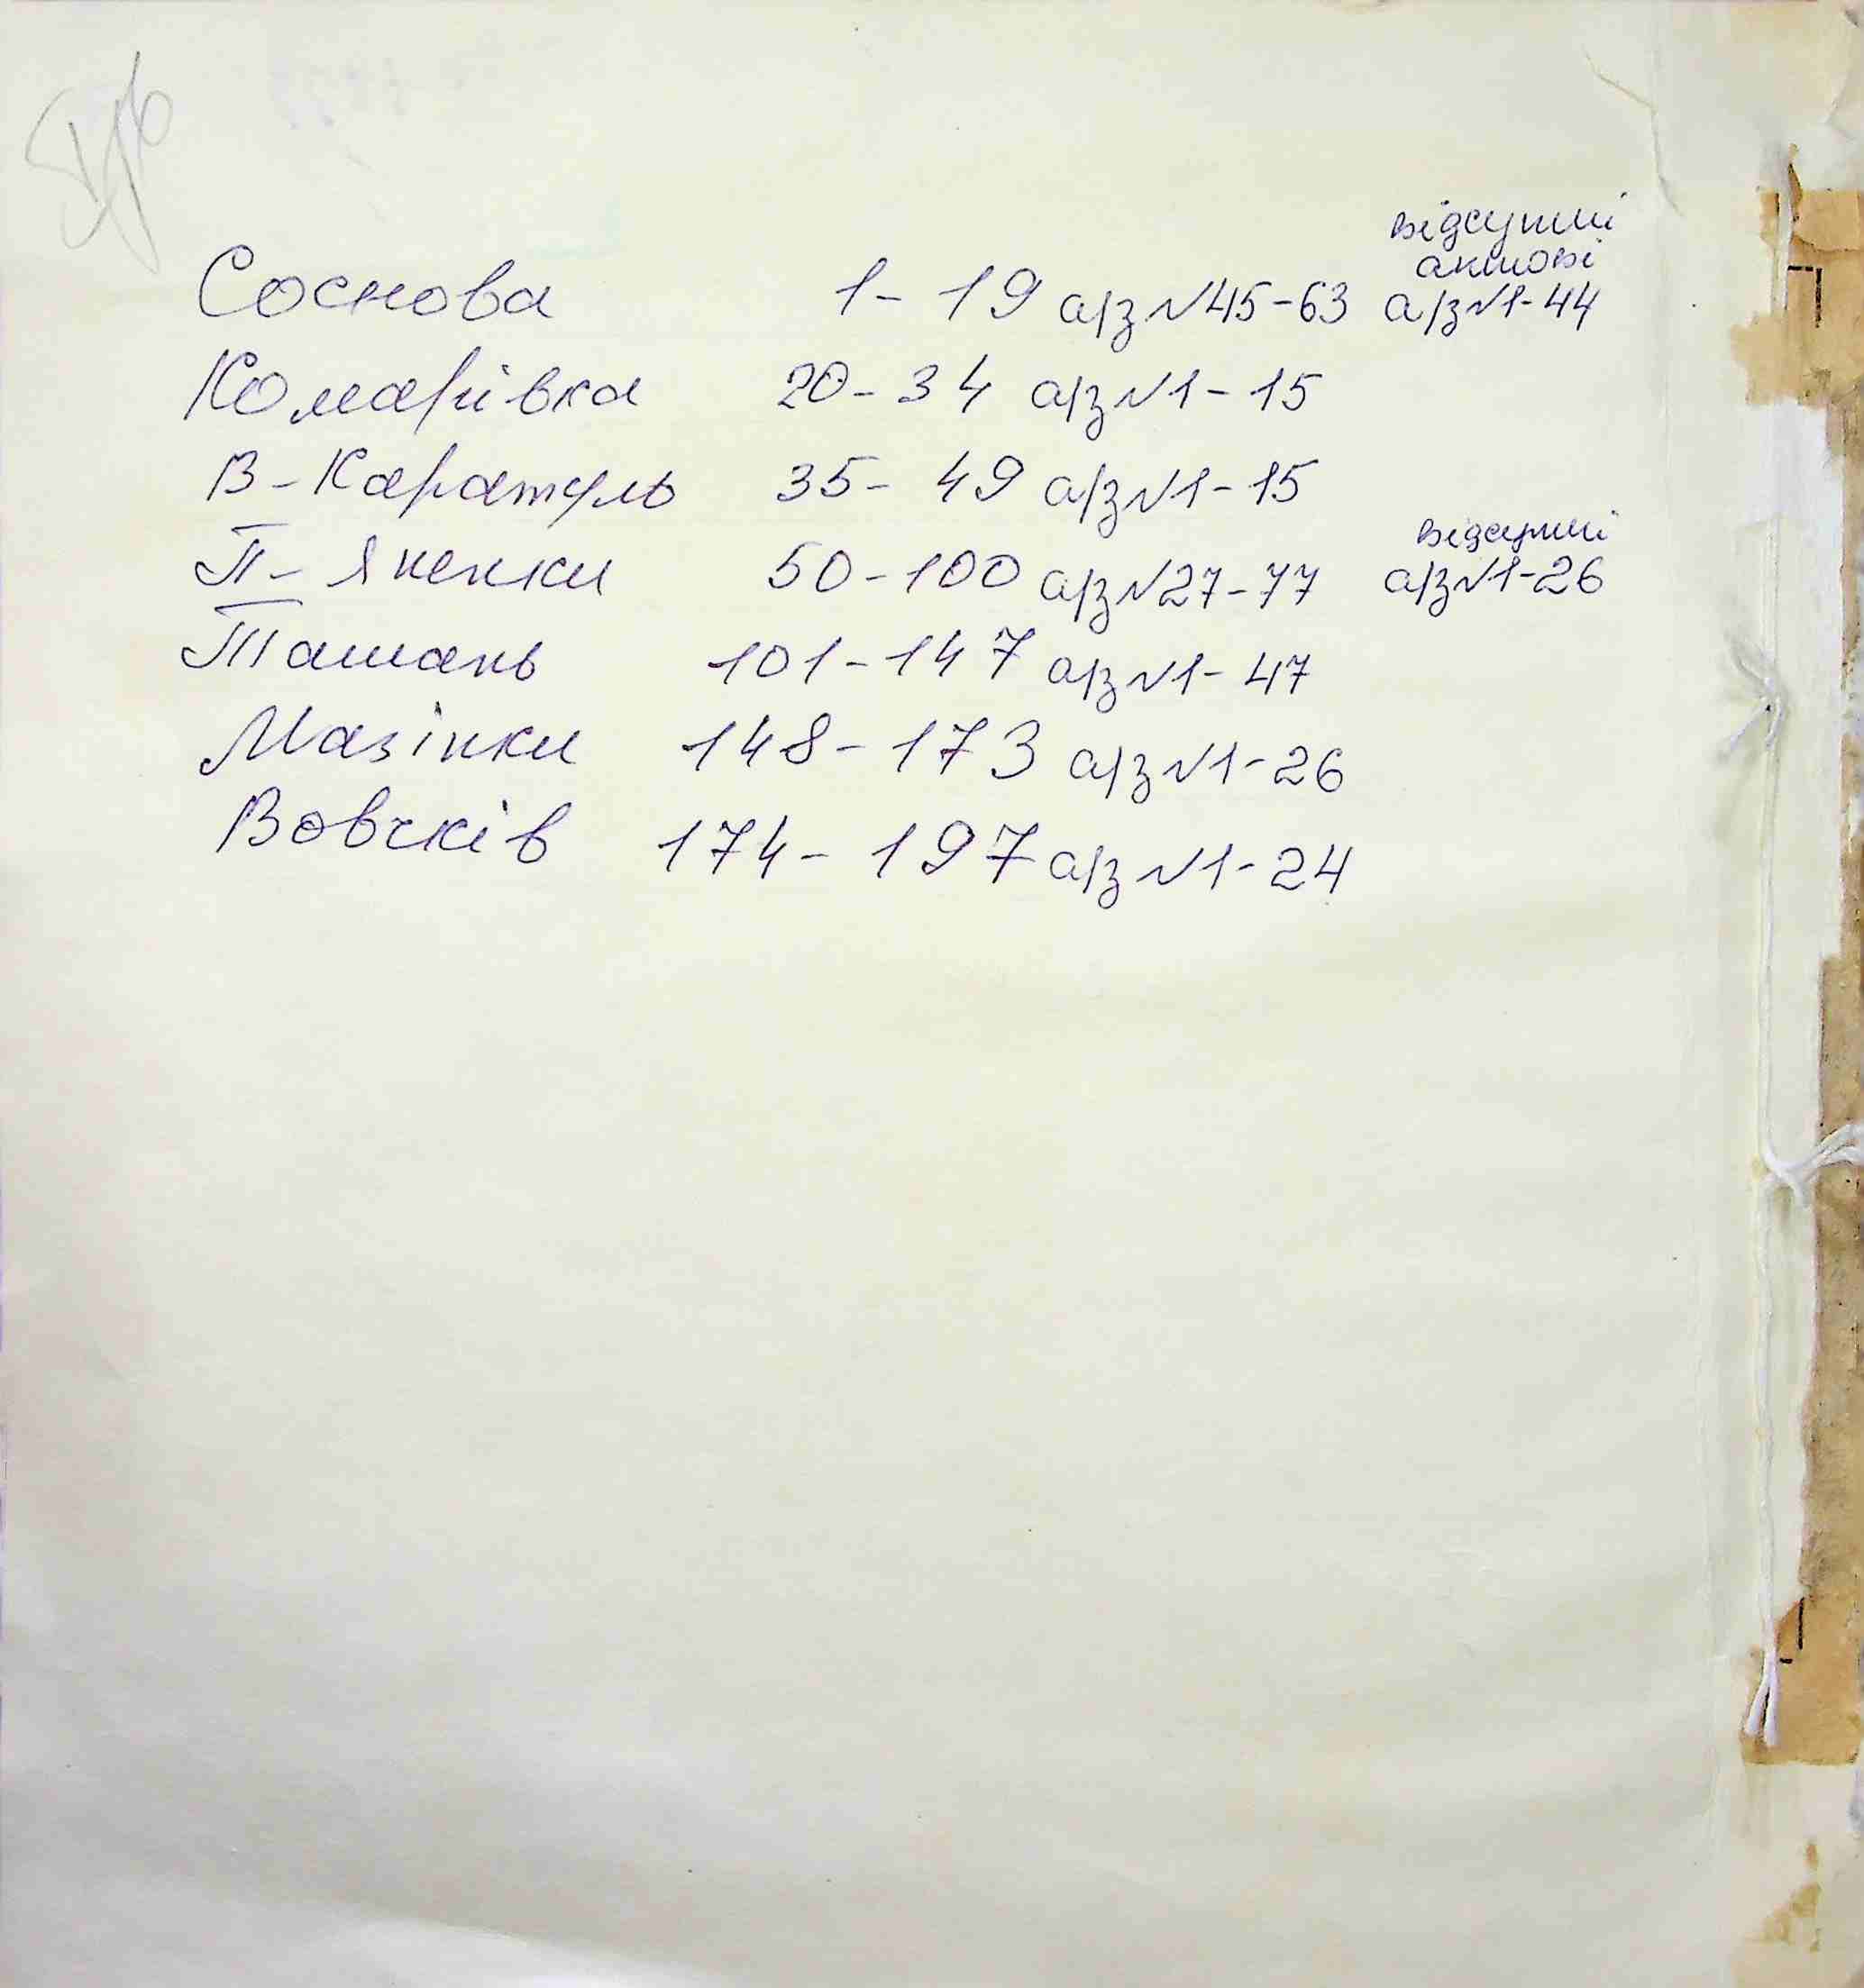 відсутні
актові
Соснова 1-19 а/з №45-63 а/з №1-44
Комарівка 20-34 а/з №1-15
В-Каратуль 35-49 а/з №1-15
відсутні
П-Яненки 50-100 а/з №27-77 а/з №1-26
Ташань 101-147 а/з №1-47
Мазінки 148-173 а/з №1-26
Вовчків 174-197 а/з №1-24